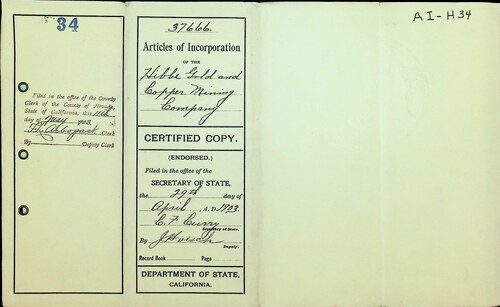 34
Filed in the office of the County
Clerk of the County of Nevada,
State of California, this 11th
day of May 1903.
F. L. Arbogast Clerk
By Deputy Clerk
37666.
Articles of Incorporation
OF THE
Hibbe Gold and
Copper Mining
Company
CERTIFIED COPY.
(ENDORSED.)
Filed in the office of the
SECRETARY OF STATE,
the 29th day of
April A. D. 1903
C. F. Curry
Secretary of State.
By J. Hoesch
Deputy.
Record Book Page
DEPARTMENT OF STATE,
CALIFORNIA.
AI-H34